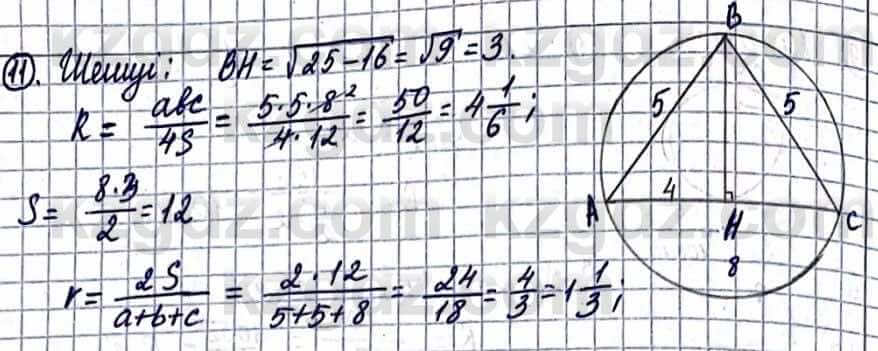 11. Шешуі: BH = √25-16 = √9 = 3.
R = abc/4S = 5·5·8²/4·12 = 50/12 = 4 1/6;
S = 8·3/2 = 12
r = 2S/a+b+c = 2·12/5+5+8 = 24/18 = 4/3 = 1 1/3;
B
5 5
A 4 H C
8
kzgdz.com